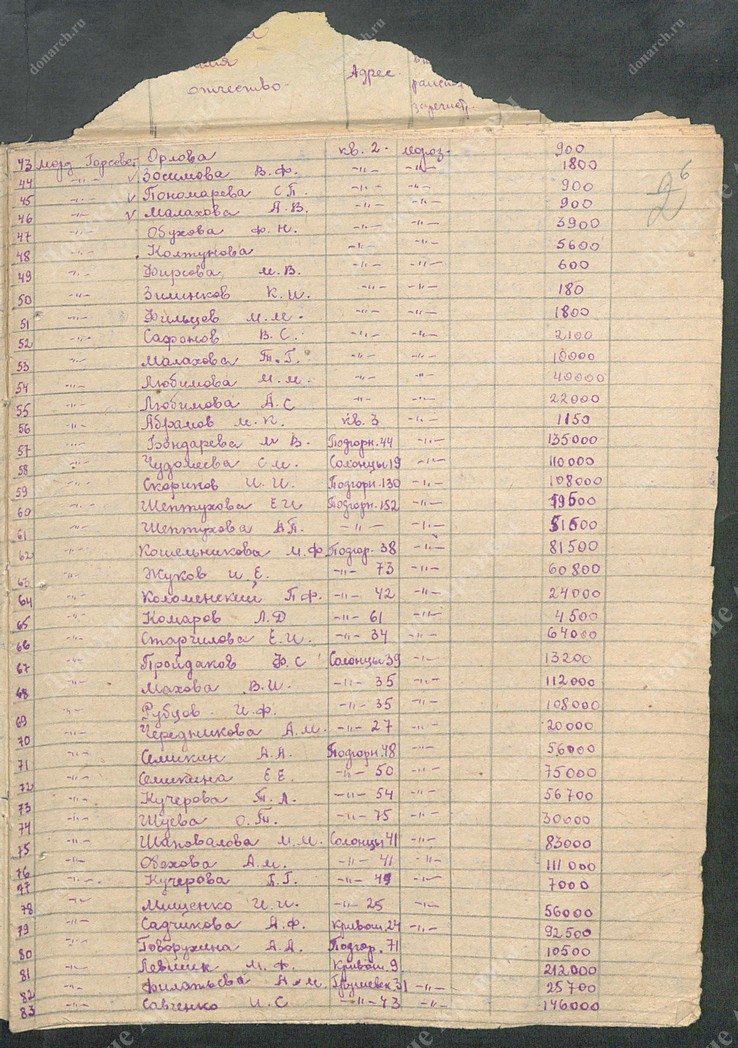 отчество
Адрес
43 Морз Горсовет Орлова кв. 2. мороз. 900
44 -"- v Зосимова В.Ф. -"- -"- 1800
45 -"- v Пономарева С.П. -"- -"- 900
46 -"- v Малахова А.В. -"- -"- 900
47 -"- Обухова Ф.Н. -"- -"- 3900
48 -"- Колтунова -"- -"- 5600
49 -"- Фирсова М.В. -"- -"- 600
50 -"- Зиминков К.И. -"- -"- 180
51 -"- Фильцов М.М. -"- -"- 1800
52 -"- Сафонов В.С. -"- -"- 2100
53 -"- Малахова Т.Г. -"- -"- 10000
54 -"- Любимова М.М. -"- -"- 40000
55 -"- Любимова А.С -"- -"- 22000
56 -"- Абрамов М.К. кв. 3 -"- 1150
57 -"- Бондарева М В. Подгорн.44 -"- 135000
58 -"- Чудомеева С.М. Солонцы19 -"- 110000
59 -"- Скоринов И.И. Подгорн.130 -"- 108000
60 -"- Шептухова Е.И Подгорн.152 -"- 19500
61 -"- Шептухова А.П. -"- -"- 51500
62 -"- Кошельникова М.Ф. Подгор. 38 -"- 81500
63 -"- Жуков И.Е. -"- 73 -"- 60800
64 -"- Коломенский П.Ф. -"- 42 -"- 24000
65 -"- Комаров Л.Д -"- 61 -"- 4500
66 -"- Старчилова Е.И. -"- 34 -"- 64000
67 -"- Пройдаков Ф.С Солонцы39 -"- 13200
68 -"- Махова В.И. -"- 35 -"- 112000
69 -"- Рубцов И.Ф. -"- 35 -"- 108000
70 -"- Чередникова А.М. -"- 27 -"- 20000
71 -"- Семикин А.А. Подгорн.48 -"- 56000
72 -"- Семикина Е.Е. -"- 50 -"- 75000
73 -"- Кучерова Т.Л. -"- 54 -"- 56700
74 -"- Шуева О.Т. -"- 75 -"- 30000
75 -"- Шаповалова М.М. Солонцы41 -"- 83000
76 -"- Овахова А.М. -"- 41 -"- 111000
77 -"- Кучерова П.Г. -"- 49 -"- 7000
78 -"- Мищенко И.И. -"- 25 -"- 56000
79 -"- Садчикова А.Ф. Кривош.24 -"- 92500
80 -"- Говорухина А.А. Подгор. 71 10500
81 -"- Левшик М.Ф. Кривош.9 212000
82 -"- Филатьева А.М. Грушевск31 -"- 25700
83 -"- Савченко И.С -"- 43 -"- 146000
26
donarch.ru